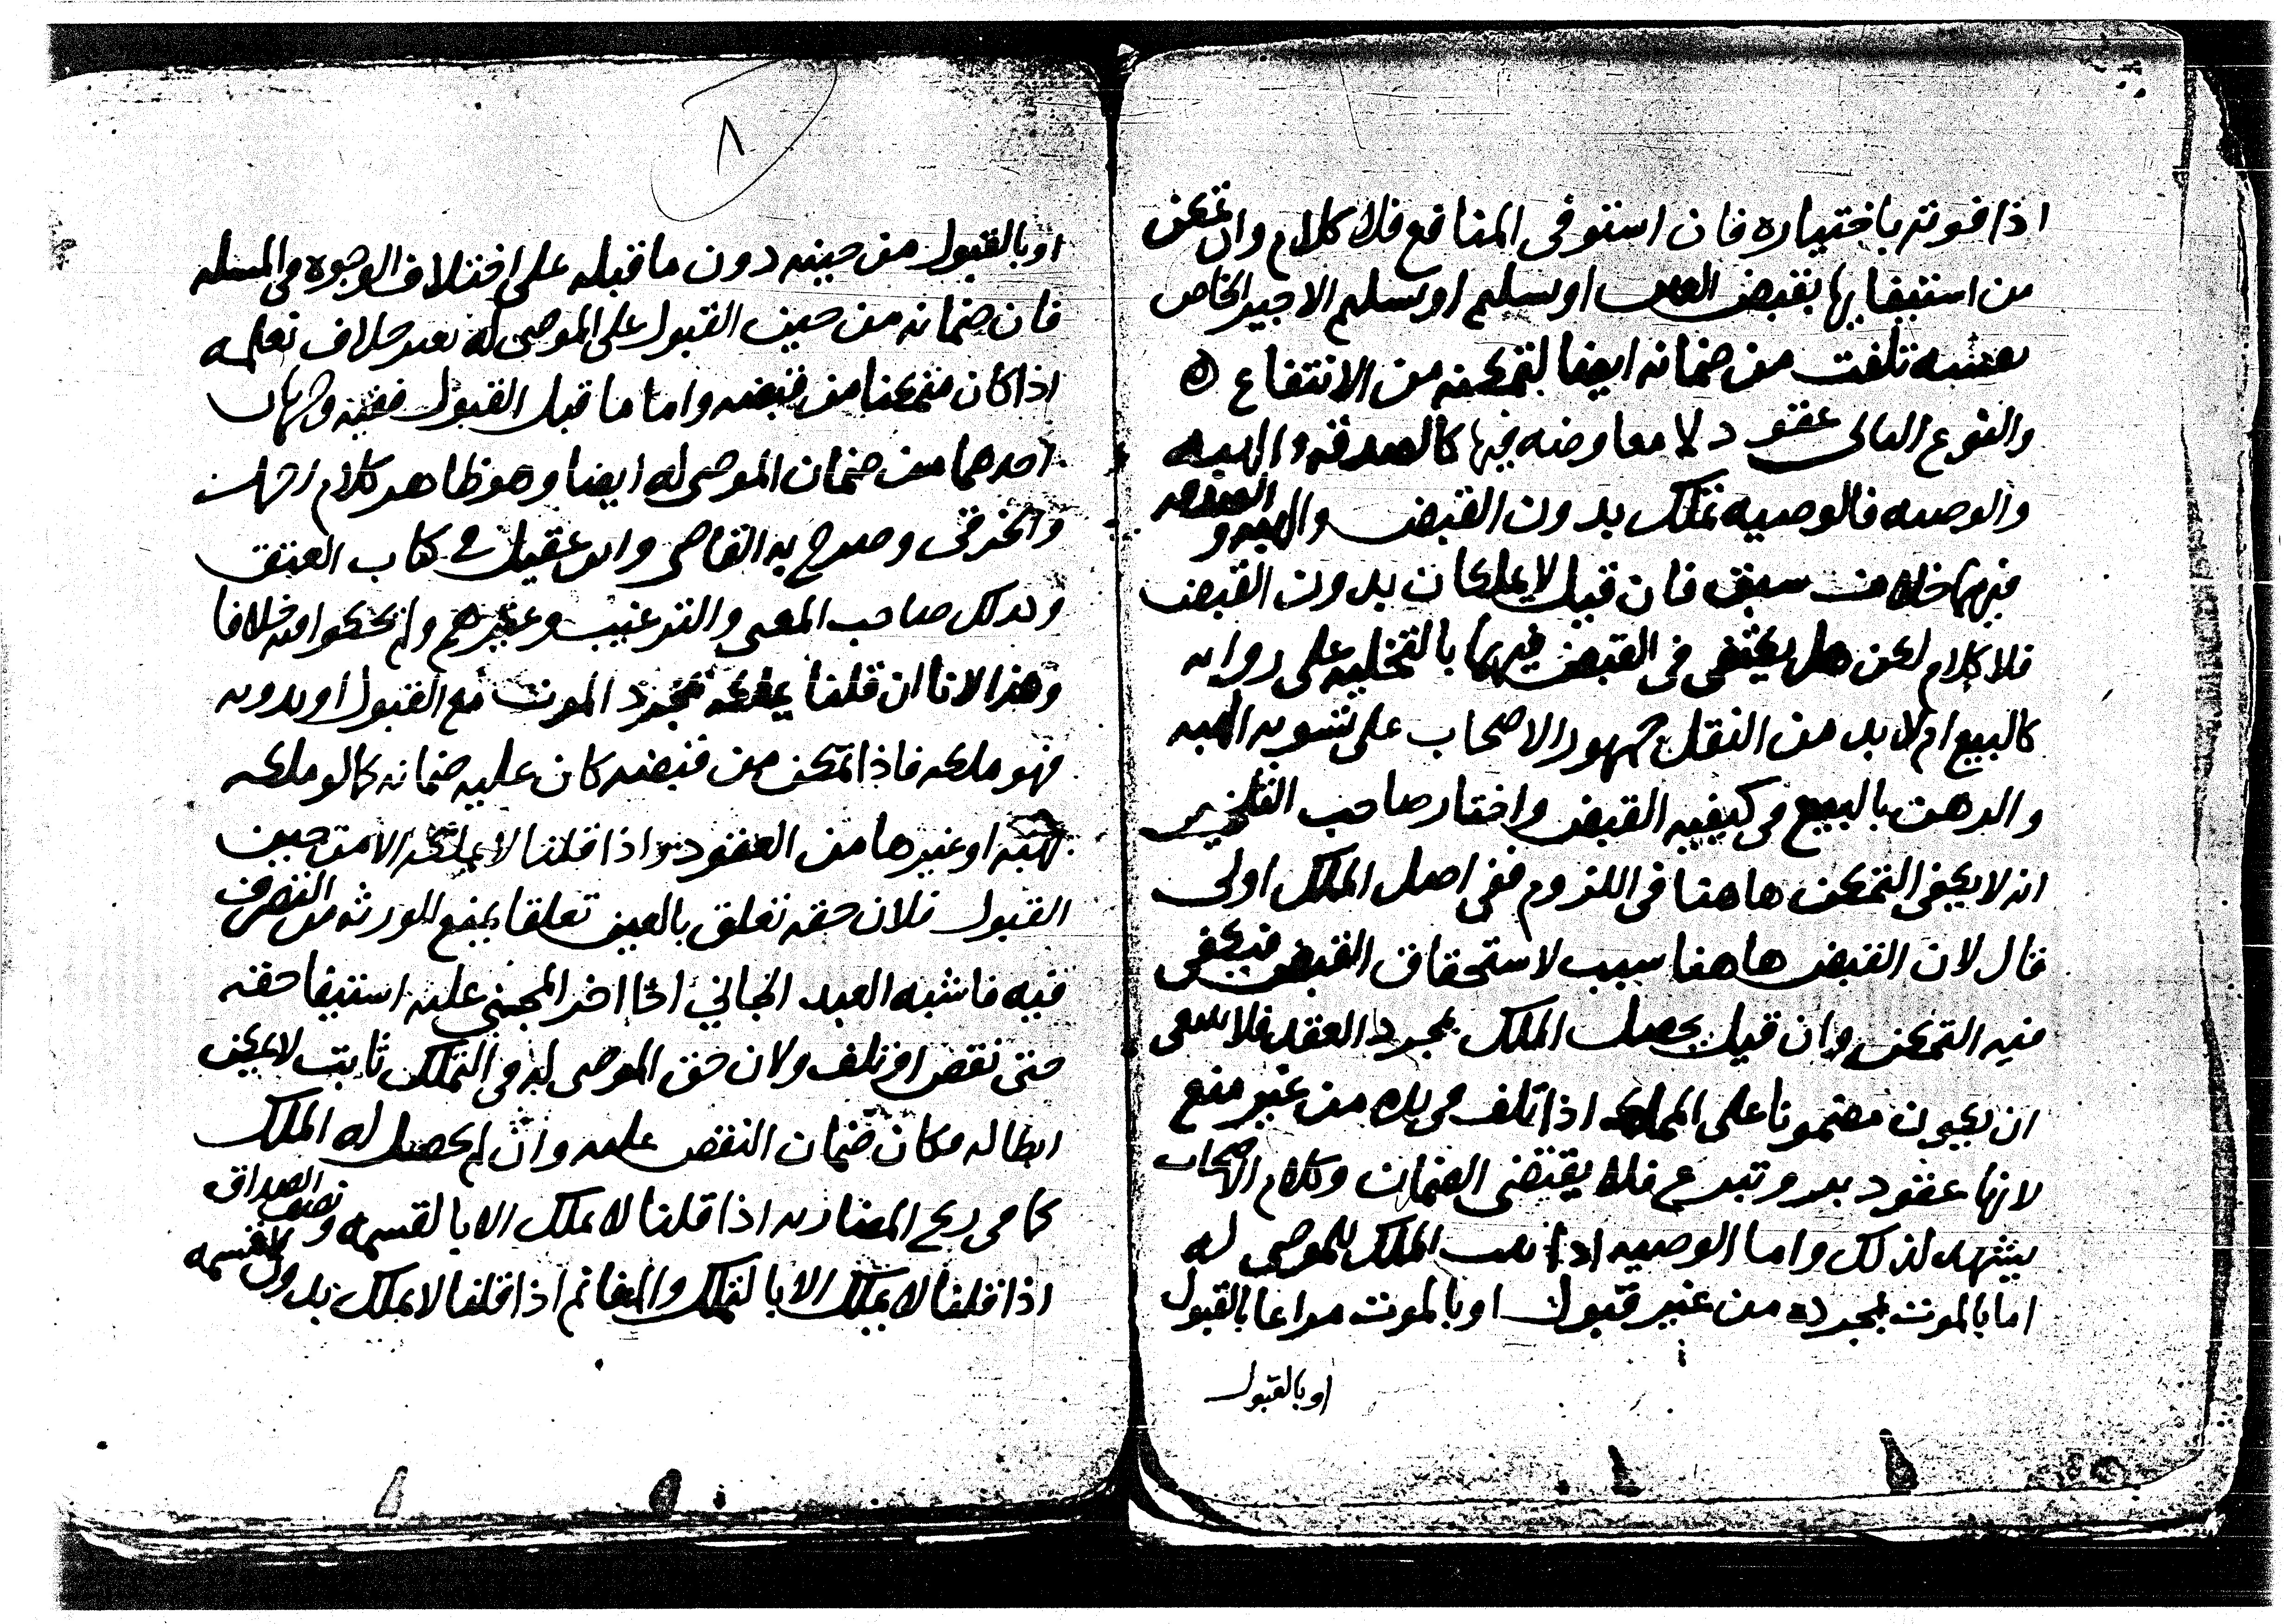 اذا فوته باختياره فان استوفى المنافع فلا كلام وان تمكن
من استيفايها بقبض العين او تسليم او تسليم الاجير الخاص
نفسه تلفت من ضمانه ايضا لتمكنه من الانتفاع ه
والنوع الثانى عقود لا معاوضه فيها كالصدقه والهبه
والوصيه فالوصيه تملك بدون القبض والهبه و الصدقه
فيهما خلاف سبق فان قيل لا يملكان بدون القبض
فلا كلام لكن هل يكتفى فى القبض فيهما بالتخليه على روايه
كالبيع ام لا بد من النقل جمهور الاصحاب على تسويه الهبه
والرهن بالبيع فى كيفيه القبض واختار صاحب التلخيص
انه لا يكفى التمكن هاهنا فى اللزوم ففى اصل الملك اولى
قال لان القبض هاهنا سبب لاستحقاق القبض فيكفى
فيه التمكن وان قيل يحصل الملك بمجرد العقد فلا ينبغى
ان يكون مضمونا على المملك اذا تلف فى يده من غير منع
لانها عقود بر وتبرع فلا يقتضى الضمان وكلام الاصحاب
يشهد لذلك واما الوصيه اذا ثبت الملك للموصى له
اما بالموت بمجرده من غير قبول او بالموت مراعا بالقبول
او بالقبول
٨
او بالقبول من حينه دون ما قبله على اختلاف الوجوه فى المسله
فان ضمانه من حين القبول على الموصى له بغير خلاف نعلمه
اذا كان متمكنا من قبضه واما ما قبل القبول ففيه وجهان
احدهما من ضمان الموصى له ايضا وهو ظاهر كلام احمد
والخرقى وصرح به القاضى وابن عقيل فى كتاب العتق
وكذلك صاحب المغنى والترغيب وغيرهم ولم يحكوا فيه خلافا
وهذا لانا ان قلنا يملكه بمجرد الموت مع القبول او بدونه
فهو ملكه فاذا تمكن من قبضه كان عليه ضمانه كما لو ملكه
بهبه او غيرها من العقود واذا قلنا لا يملكه الا من حين
القبول فلان حقه تعلق بالعين تعلقا يمنع الورثه من التصرف
فيه فاشبه العبد الجاني اذا اخر المجنى عليه استيفا حقه
حتى نقص او تلف ولان حق الموصى له فى التملك ثابت لا يمكن
ابطاله فكان ضمان النقص عليه وان لم يحصل له الملك
كما فى ربح المضاربه اذا قلنا لا يملك الا بالقسمه ونصف الصداق
اذا قلنا لا يملك الا بالتملك والمغانم اذا قلنا لا يملك بدون القسمه